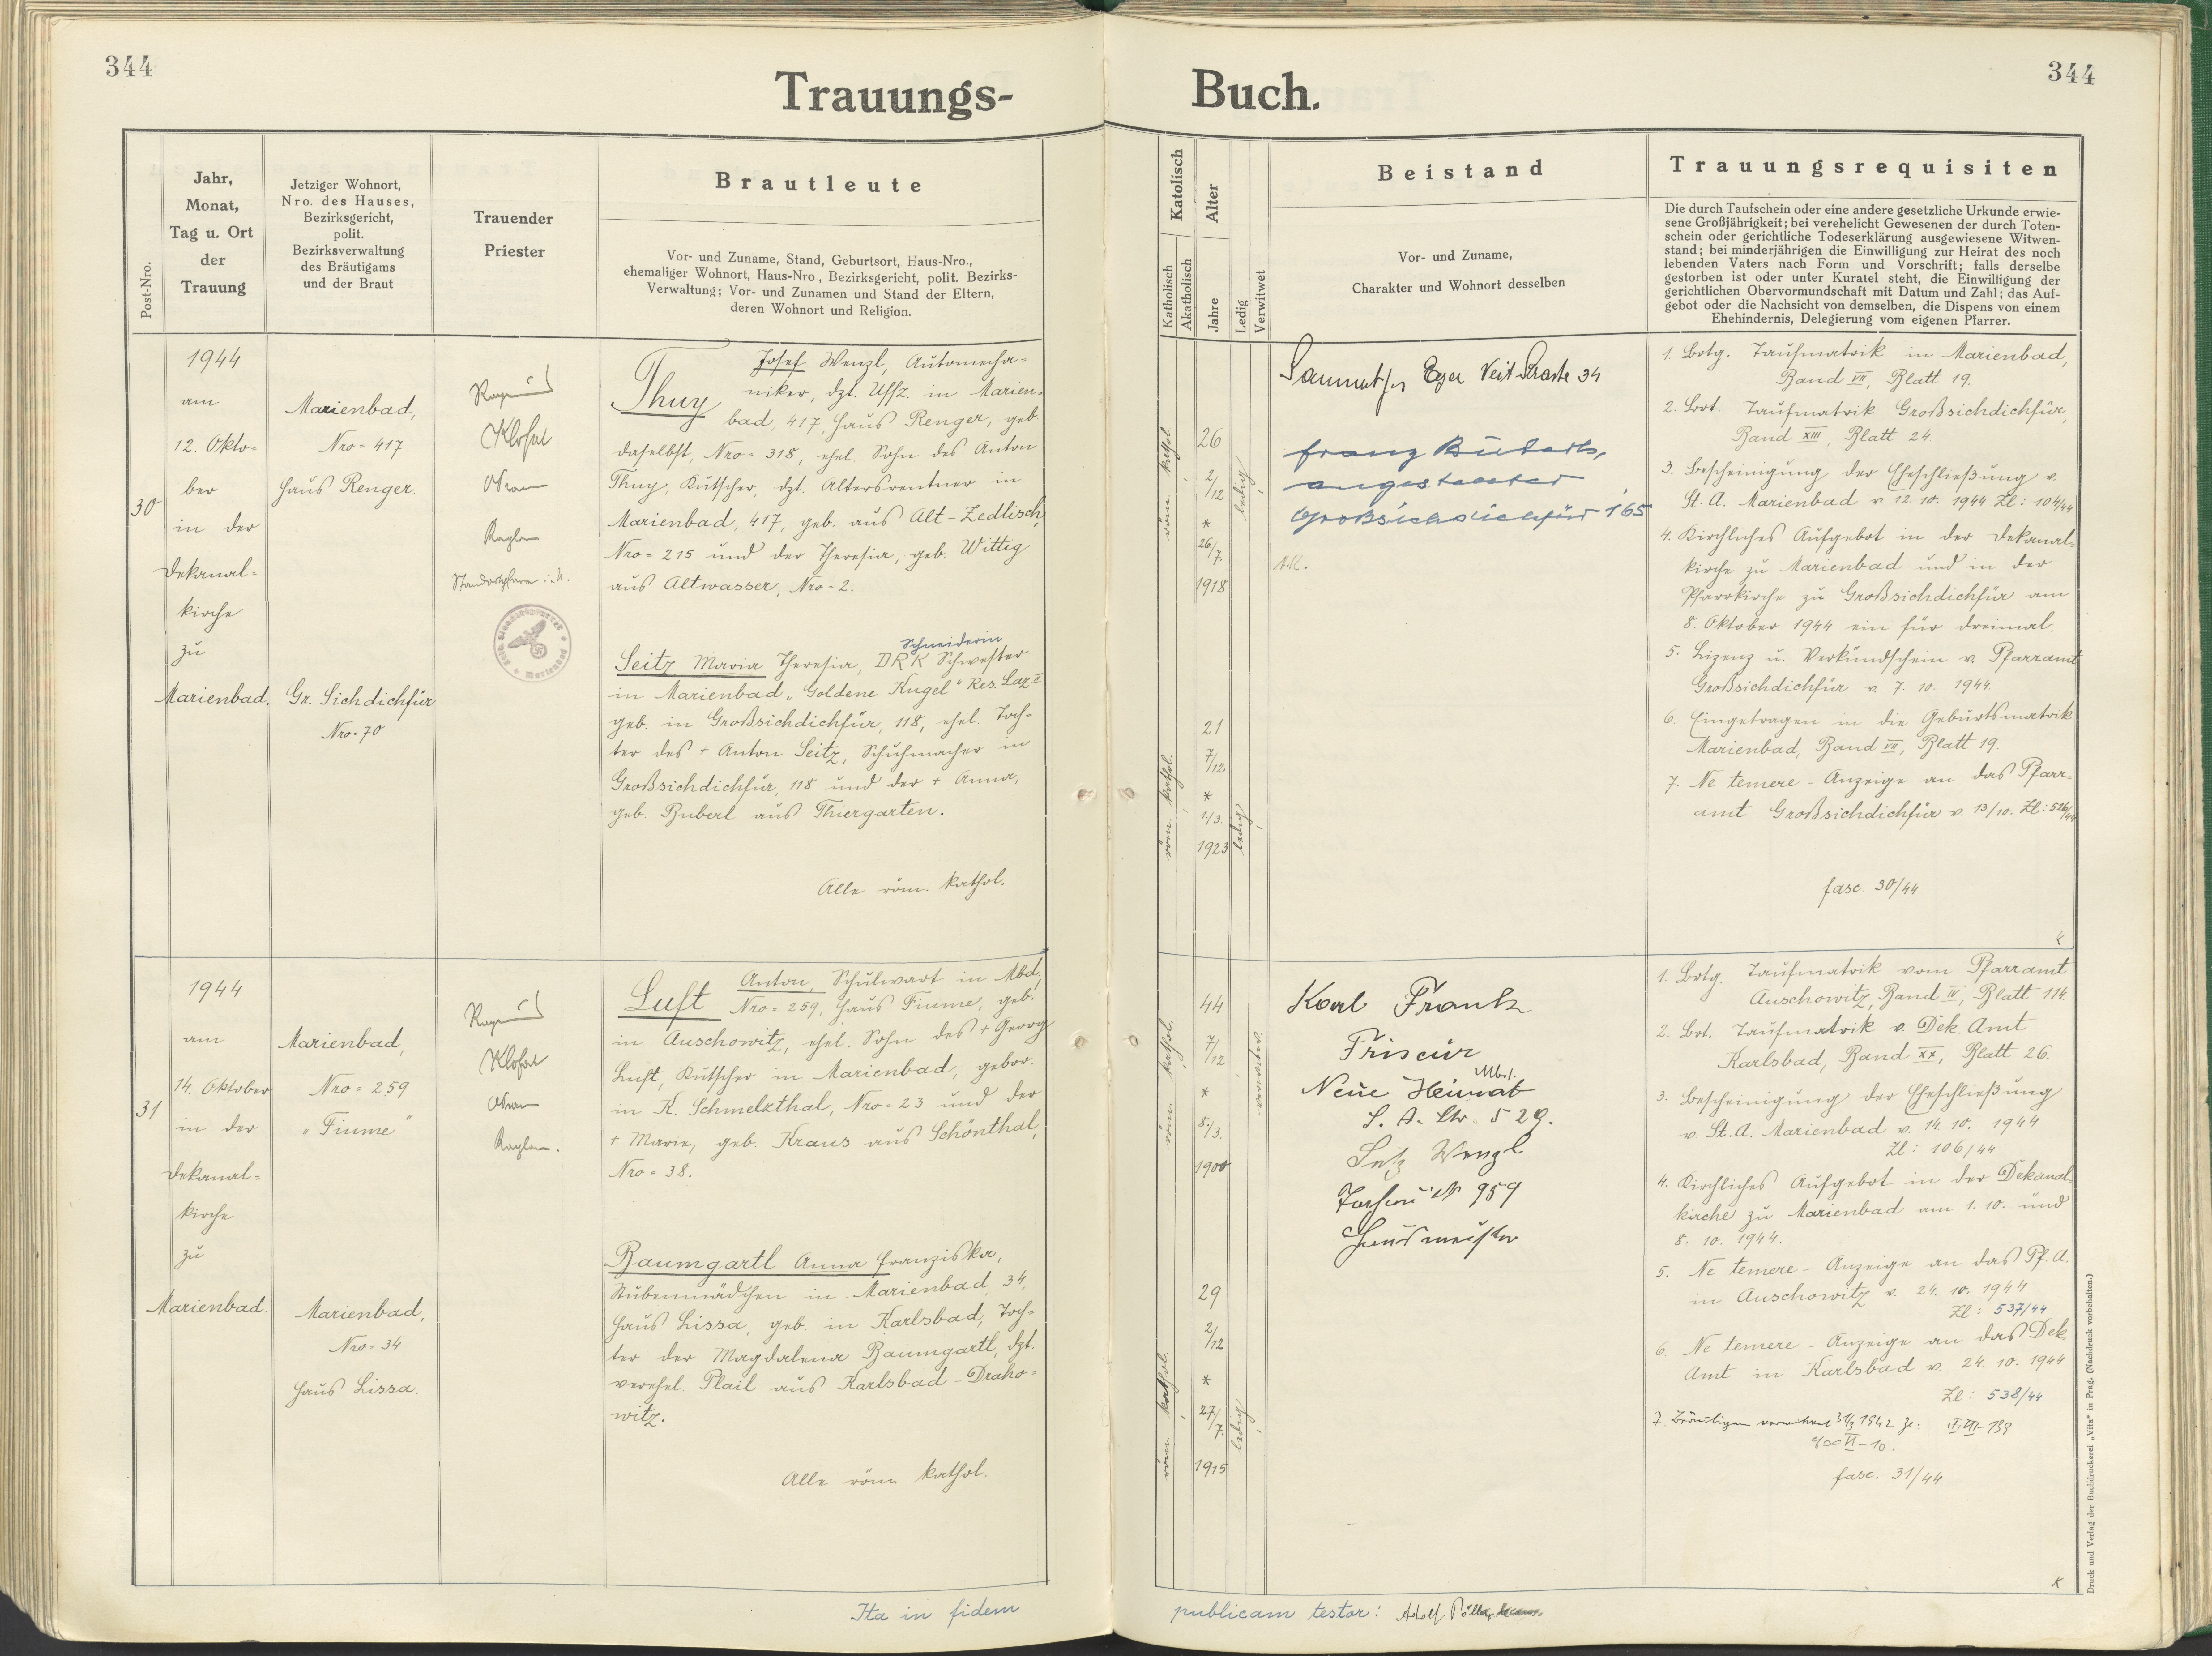 344
Trauungs-
Post-Nro.
Jahr,
Monat,
Tag u. Ort
der
Trauung
Jetziger Wohnort,
Nro. des Hauses,
Bezirksgericht,
polit.
Bezirksverwaltung
des Bräutigams
und der Braut
Trauender
Priester
Brautleute
Vor- und Zuname, Stand, Geburtsort, Haus-Nro.,
ehemaliger Wohnort, Haus-Nro., Bezirksgericht, polit. Bezirks-
Verwaltung; Vor- und Zunamen und Stand der Eltern,
deren Wohnort und Religion.
30
1944
am
12. Okto-
ber
in der
Dekanal-
kirche
zu
Marienbad.
Marienbad,
Nro = 417
Haus Renger.
Gr. Sichdichfür
Nro = 70
Klofat
Standortpfarrer i. N.
Josef Wenzl, Automecha-
Thuy niker, dzt. Uffz. in Marien-
bad, 417, Haus Renger, geb
daselbst, Nro = 318, ehel. Sohn des Anton
Thuy, Kutscher, dzt. Altersrentner in
Marienbad, 417, geb. aus Alt-Zedlisch,
Nro = 215 und der Theresia, geb. Wittig
aus Altwasser, Nro = 2.
Schneiderin
Seitz Maria Theresia, DRK Schwester
in Marienbad „Goldene Kugel" Res. Laz. II
geb. in Großsichdichfür, 118, ehel. Toch-
ter des + Anton Seitz, Schuhmacher in
Großsichdichfür, 118 und der + Anna,
geb. Buberl aus Thiergarten.
Alle röm. kathol.
31
1944
am
14. Oktober
in der
Dekanal-
kirche
zu
Marienbad.
Marienbad,
Nro = 259
„Fiume"
Marienbad,
Nro = 34
Haus Lissa.
Klofat
Anton, Schulwart in Mbd,
Luft Nro = 259, Haus Fiume, geb.
in Auschowitz, ehel. Sohn des + Georg
Luft, Kutscher in Marienbad, gebor.
in K. Schmelzthal, Nro = 23 und der
+ Marie, geb. Kraus aus Schönthal,
Nro = 38.
Baumgartl Anna Franziska,
Stubenmädchen in Marienbad 34,
Haus Lissa, geb. in Karlsbad, Toch-
ter der Magdalena Baumgartl, dzt.
verehel. Plail aus Karlsbad - Draho-
witz.
Alle röm. kathol.
Ita in fidem
344
Buch.
Katolisch
Katholisch
Akatholisch
Alter
Jahre
Ledig
Verwitwet
Beistand
Vor- und Zuname,
Charakter und Wohnort desselben
Trauungsrequisiten
Die durch Taufschein oder eine andere gesetzliche Urkunde erwie-
sene Großjährigkeit; bei verehelicht Gewesenen der durch Toten-
schein oder gerichtliche Todeserklärung ausgewiesene Witwen-
stand; bei minderjährigen die Einwilligung zur Heirat des noch
lebenden Vaters nach Form und Vorschrift; falls derselbe
gestorben ist oder unter Kuratel steht, die Einwilligung der
gerichtlichen Obervormundschaft mit Datum und Zahl; das Auf-
gebot oder die Nachsicht von demselben, die Dispens von einem
Ehehindernis, Delegierung vom eigenen Pfarrer.
röm. kathol.
26
2/12
*
26/7.
1918
ledig
röm. kathol.
21
7/12
*
1/3.
1923
ledig
Eger Veit Straße 34
Franz
angestellter
Großsichdichfür 165
1. Brtg. Taufmatrik in Marienbad,
Band VII, Blatt 19.
2. Brt. Taufmatrik Großsichdichfür,
Band XIII, Blatt 24.
3. Bescheinigung der Eheschließung v.
St. A. Marienbad v. 12. 10. 1944 Zl: 104/44
4. Kirchliches Aufgebot in der Dekanal-
kirche zu Marienbad und in der
Pfarrkirche zu Großsichdichfür am
8. Oktober 1944 ein für dreimal.
5. Lizenz u. Verkündschein v. Pfarramt
Großsichdichfür v. 7. 10. 1944.
6. Eingetragen in die Geburtsmatrik
Marienbad, Band VII, Blatt 19.
7. Ne temere - Anzeige an das Pfarr-
amt Großsichdichfür v. 13/10. Zl: 516/44
fasc. 30/44
röm. kathol.
44
7/12
*
8/3.
1900
verwitwet
röm. kathol.
29
2/12
*
27/7.
1915
ledig
Karl Frank
Friseur
Mbd.
Neue Heimat
S. A. Str. 529.
Wenzl
959
Hausmeister
1. Brtg. Taufmatrik vom Pfarramt
Auschowitz, Band IV, Blatt 114.
2. Brt. Taufmatrik v. Dek. Amt
Karlsbad, Band XX, Blatt 26.
3. Bescheinigung der Eheschließung
v. St. A. Marienbad v. 14. 10. 1944
Zl: 106/44
4. Kirchliches Aufgebot in der Dekanal-
kirche zu Marienbad am 1. 10. und
8. 10. 1944.
5. Ne temere - Anzeige an das Pf. A.
in Auschowitz v. 24. 10. 1944
Zl: 537/44
6. Ne temere - Anzeige an das Dek.
Amt in Karlsbad v. 24. 10. 1944
Zl: 538/44
7. Bräutigam verwitwet 31/3 1942
fasc. 31/44
publicam testor: Adolf
Druck und Verlag der Buchdruckerei „Vita" in Prag. (Nachdruck vorbehalten.)